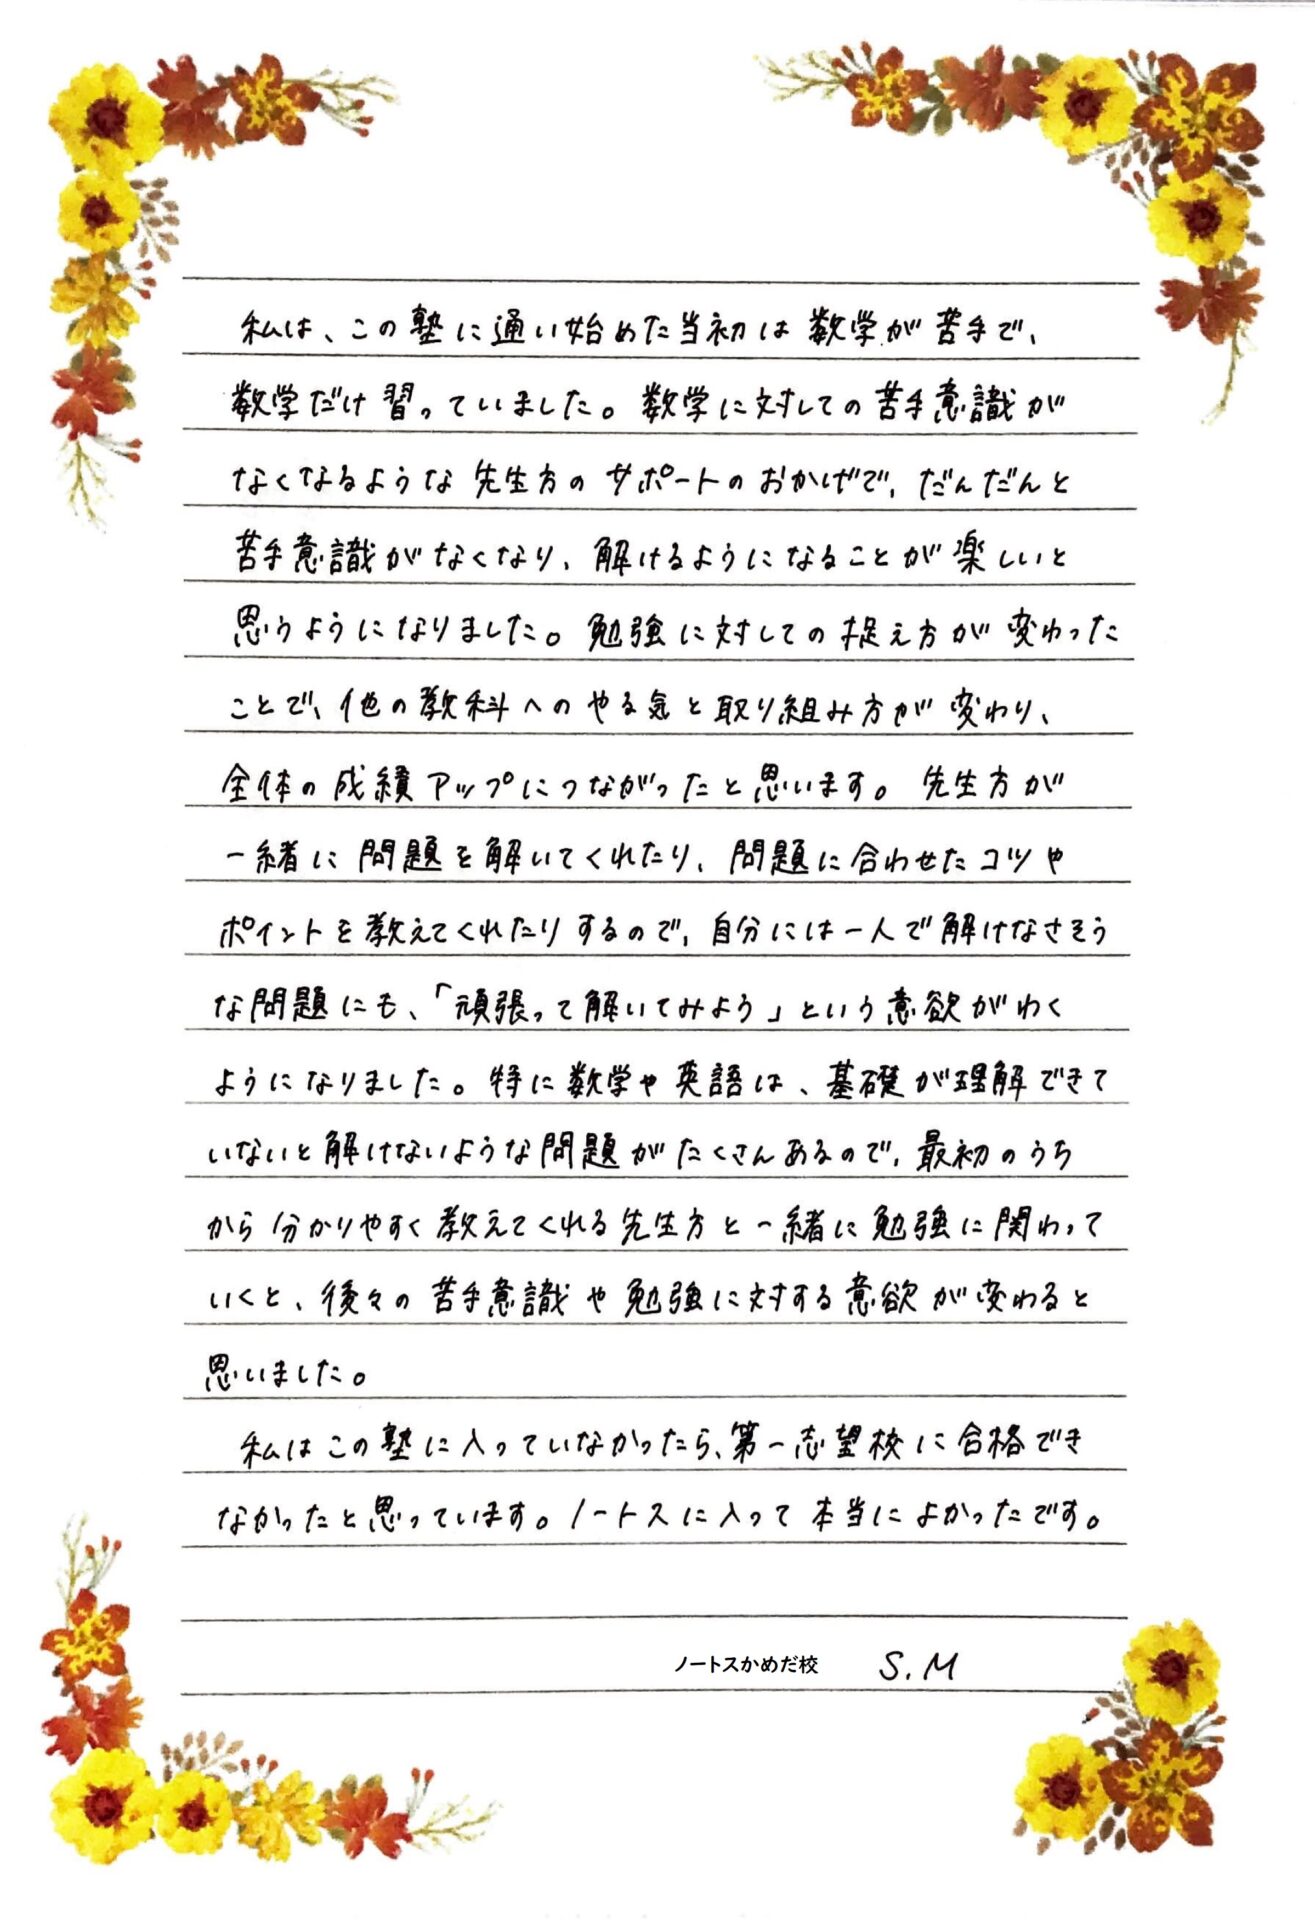 私は、この塾に通い始めた当初は数学が苦手で、
数学だけ習っていました。数学に対しての苦手意識が
なくなるような先生方のサポートのおかげで、だんだんと
苦手意識がなくなり、解けるようになることが楽しいと
思うようになりました。勉強に対しての捉え方が変わった
ことで、他の教科へのやる気と取り組み方が変わり、
全体の成績アップにつながったと思います。先生方が
一緒に問題を解いてくれたり、問題に合わせたコツや
ポイントを教えてくれたりするので、自分には一人で解けなさそう
な問題にも、「頑張って解いてみよう」という意欲がわく
ようになりました。特に数学や英語は、基礎が理解できて
いないと解けないような問題がたくさんあるので、最初のうち
から分かりやすく教えてくれる先生方と一緒に勉強に関わって
いくと、後々の苦手意識や勉強に対する意欲が変わると
思いました。
私はこの塾に入っていなかったら、第一志望校に合格でき
なかったと思っています。ノートスに入って本当によかったです。
ノートスかめだ校 S.M